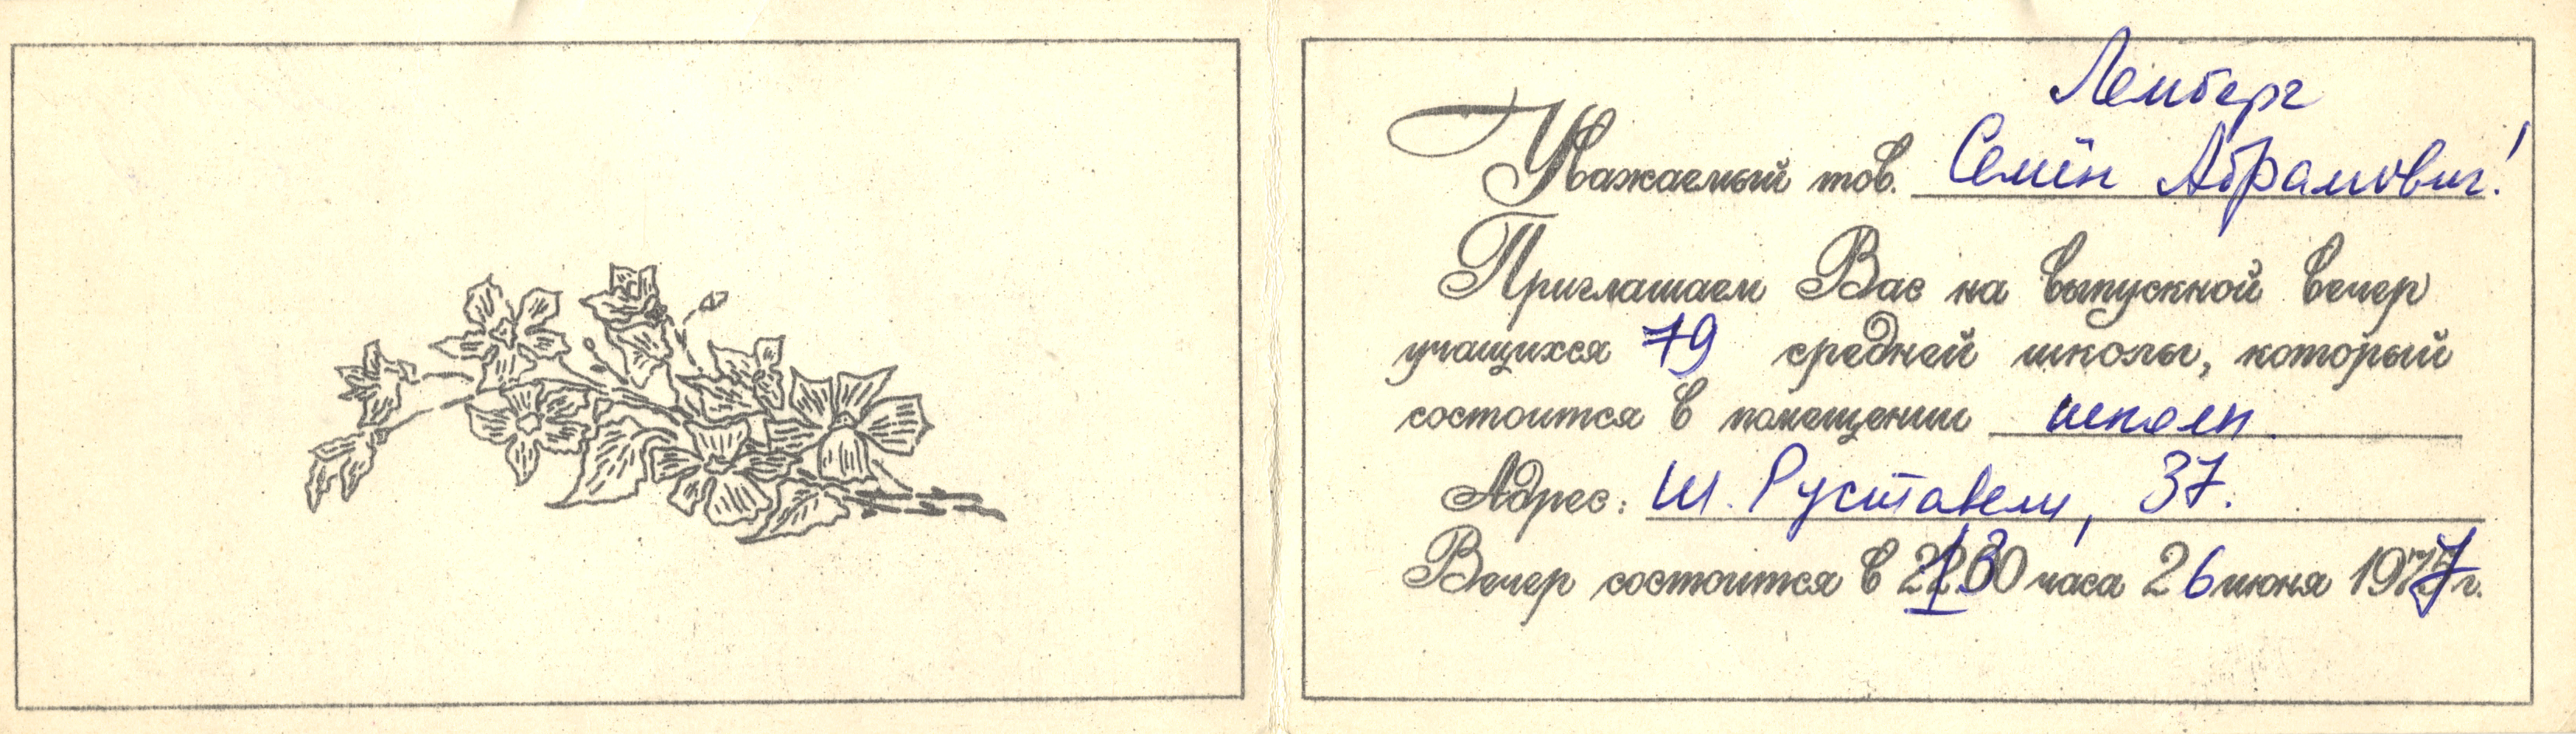 Лемберг
Уважаемый тов. Семён Абрамович!
Приглашаем Вас на выпускной вечер
учащихся 79 средней школы, который
состоится в помещении школы.
Адрес: Ш. Руставели, 37.
Вечер состоится в часа 26 июня 1977 г.